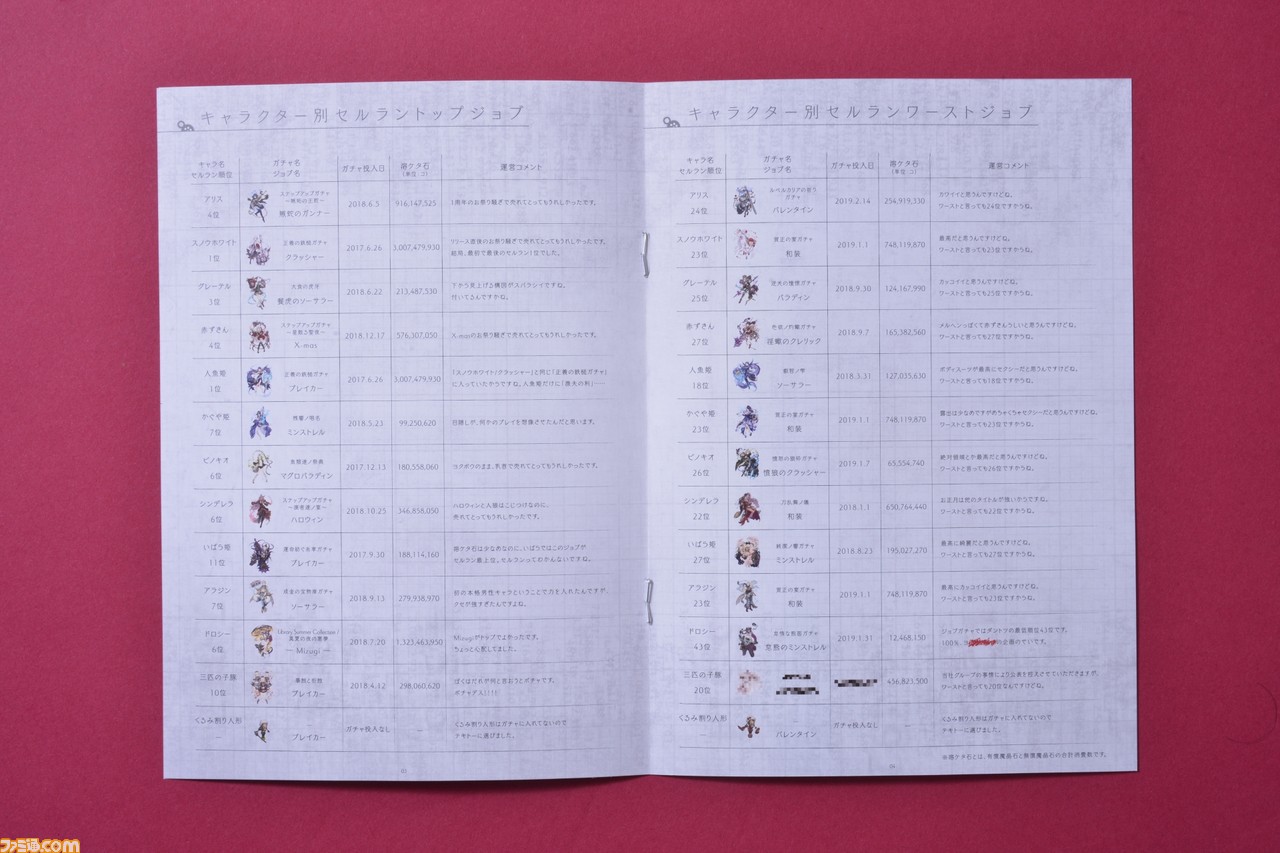 キャラクター別セルラントップジョブ
キャラ名
セルラン順位
ガチャ名
ジョブ名
ガチャ投入日
溶ケタ石
(単位 コ)
運営コメント
アリス
4位
ステップアップガチャ
のガンナー
2018.6.5
916,147,525
1周年のお祭り騒ぎで売れてとってもうれしかったです。
スノウホワイト
1位
正義の鉄槌ガチャ
クラッシャー
2017.6.26
3,007,479,930
リリース直後のお祭り騒ぎで売れてとってもうれしかったです。
結局、最初で最後のセルラン1位でした。
グレーテル
3位
のソーサラー
2018.6.22
213,487,530
下から見上げる構図がスバラシイですね。
付いてさんですかね。
赤ずきん
4位
ステップアップガチャ
X-mas
2018.12.17
576,307,050
X-masのお祭り騒ぎで売れてとってもうれしかったです。
人魚姫
1位
正義の鉄槌ガチャ
ブレイカー
2017.6.26
3,007,479,930
「スノウホワイト/クラッシャー」と同じ「正義の鉄槌ガチャ」
に入っていたからですね。人魚姫だけに「漁夫の利」……
かぐや姫
7位
ミンストレル
2018.5.23
99,250,620
目隠しが、何かのプレイを想像させたんだと思います。
ピノキオ
6位
マグロパラディン
2017.12.13
180,558,060
ヨクボウのまま、乳首で売れてとってもうれしかったです。
シンデレラ
6位
ステップアップガチャ
ハロウィン
2018.10.25
346,858,050
ハロウィンと人狼はこじつけなのに、
売れてとってもうれしかったです。
いばら姫
11位
ブレイカー
2017.9.30
188,114,160
溶ケタ石は少なめなのに、いばらではこのジョブが
セルラン最上位。セルランってわかんないですね。
アラジン
7位
ソーサラー
2018.9.13
279,938,970
初の本格男性キャラということで力を入れたんですが、
クセが強すぎたんですよね。
ドロシー
6位
真夏の夜の悪夢
― Mizugi ―
2018.7.20
1,323,463,950
Mizugiがトップでよかったです。
ちょっと心配してました。
三匹の子豚
10位
ブレイカー
2018.4.12
298,060,620
ぼくはだれが何と言おうとポチャです。
ポチャアス!!!!
くるみ割り人形
―
ブレイカー
ガチャ投入なし
―
くるみ割り人形はガチャに入れてないので
テキトーに選びました。
03
キャラクター別セルランワーストジョブ
キャラ名
セルラン順位
ガチャ名
ジョブ名
ガチャ投入日
溶ケタ石
(単位 コ)
運営コメント
アリス
24位
ガチャ
バレンタイン
2019.2.14
254,919,330
カワイイと思うんですけどね。
ワーストと言っても24位ですからね。
スノウホワイト
23位
賀正の宴ガチャ
和装
2019.1.1
748,119,870
最高だと思うんですけどね。
ワーストと言っても23位ですからね。
グレーテル
25位
パラディン
2018.9.30
124,167,990
カッコイイと思うんですけどね。
ワーストと言っても25位ですからね。
赤ずきん
27位
淫蠍のクレリック
2018.9.7
165,382,560
メルヘンっぽくて赤ずきんらしいと思うんですけどね。
ワーストと言っても27位ですからね。
人魚姫
18位
ソーサラー
2018.3.31
127,035,630
ボディスーツが最高にセクシーだと思うんですけどね。
ワーストと言っても18位ですからね。
かぐや姫
23位
賀正の宴ガチャ
和装
2019.1.1
748,119,870
露出は少なめですがめちゃくちゃセクシーだと思うんですけどね。
ワーストと言っても23位ですからね。
ピノキオ
26位
憤狼のクラッシャー
2019.1.7
65,554,740
絶対領域とか最高だと思うんですけどね。
ワーストと言っても26位ですからね。
シンデレラ
22位
和装
2018.1.1
650,764,440
お正月は他のタイトルが強いからですね。
ワーストと言っても22位ですからね。
いばら姫
27位
ミンストレル
2018.8.23
195,027,270
最高に綺麗だと思うんですけどね。
ワーストと言っても27位ですからね。
アラジン
23位
賀正の宴ガチャ
和装
2019.1.1
748,119,870
最高にカッコイイと思うんですけどね。
ワーストと言っても23位ですからね。
ドロシー
43位
怠熊のミンストレル
2019.1.31
12,468,150
ジョブガチャではダントツの最低順位43位です。
100%、ヨ の企画のせいです。
三匹の子豚
20位
456,823,500
当社グループの事情により公表を控えさせていただきますが、
ワーストと言っても20位なんですけどね。
くるみ割り人形
―
バレンタイン
ガチャ投入なし
―
くるみ割り人形はガチャに入れてないので
テキトーに選びました。
※溶ケタ石とは、有償魔晶石と無償魔晶石の合計消費数です。
04
ファミ通.com